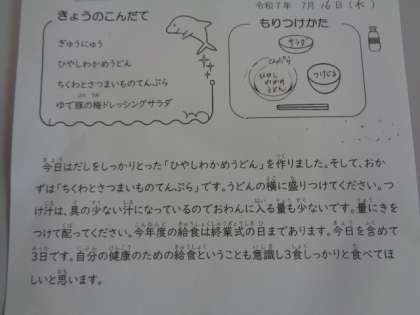 令和7年 7月16日(水)
きょうのこんだて
ぎゅうにゅう
ひやしわかめうどん
ちくわとさつまいものてんぷら
ゆで豚の梅ドレッシングサラダ
もりつけかた
サラダ
てんぷら
ひやし
わかめ
うどん
つけじる
今日はだしをしっかりとった「ひやしわかめうどん」を作りました。そして、おか
ずは「ちくわとさつまいものてんぷら」です。うどんの横に盛りつけてください。つ
け汁は、具の少ない汁になっているのでおわんに入る量も少ないです。量にきを
つけて配ってください。今年度の給食は終業式の日まであります。今日を含めて
3日です。自分の健康のための給食ということも意識し3食しっかりと食べてほ
しいと思います。